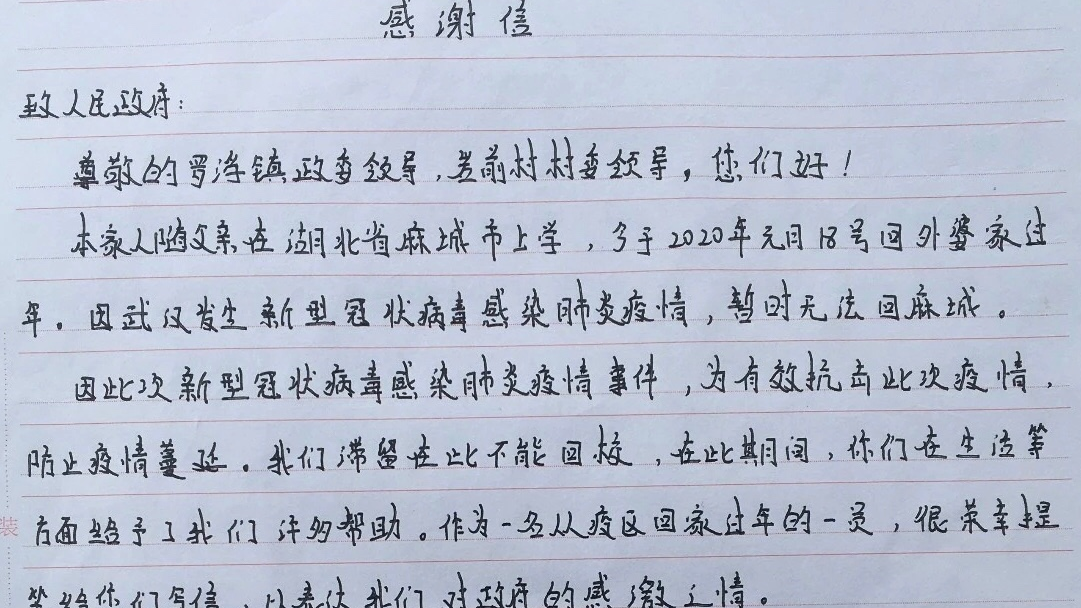 感谢信
致人民政府：
尊敬的罗浮镇政委领导，岩前村村委领导，您们好！
本家人随父亲在湖北省麻城市上学，于2020年元月18号回外婆家过
年。因武汉发生新型冠状病毒感染肺炎疫情，暂时无法回麻城。
因此次新型冠状病毒感染肺炎疫情事件，为有效抗击此次疫情，
防止疫情蔓延。我们滞留在此不能回校，在此期间，你们在生活等
方面给予了我们许多帮助。作为一名从疫区回家过年的一员，很荣幸提
笔给你们写信，以表达我们对政府的感激之情。
装